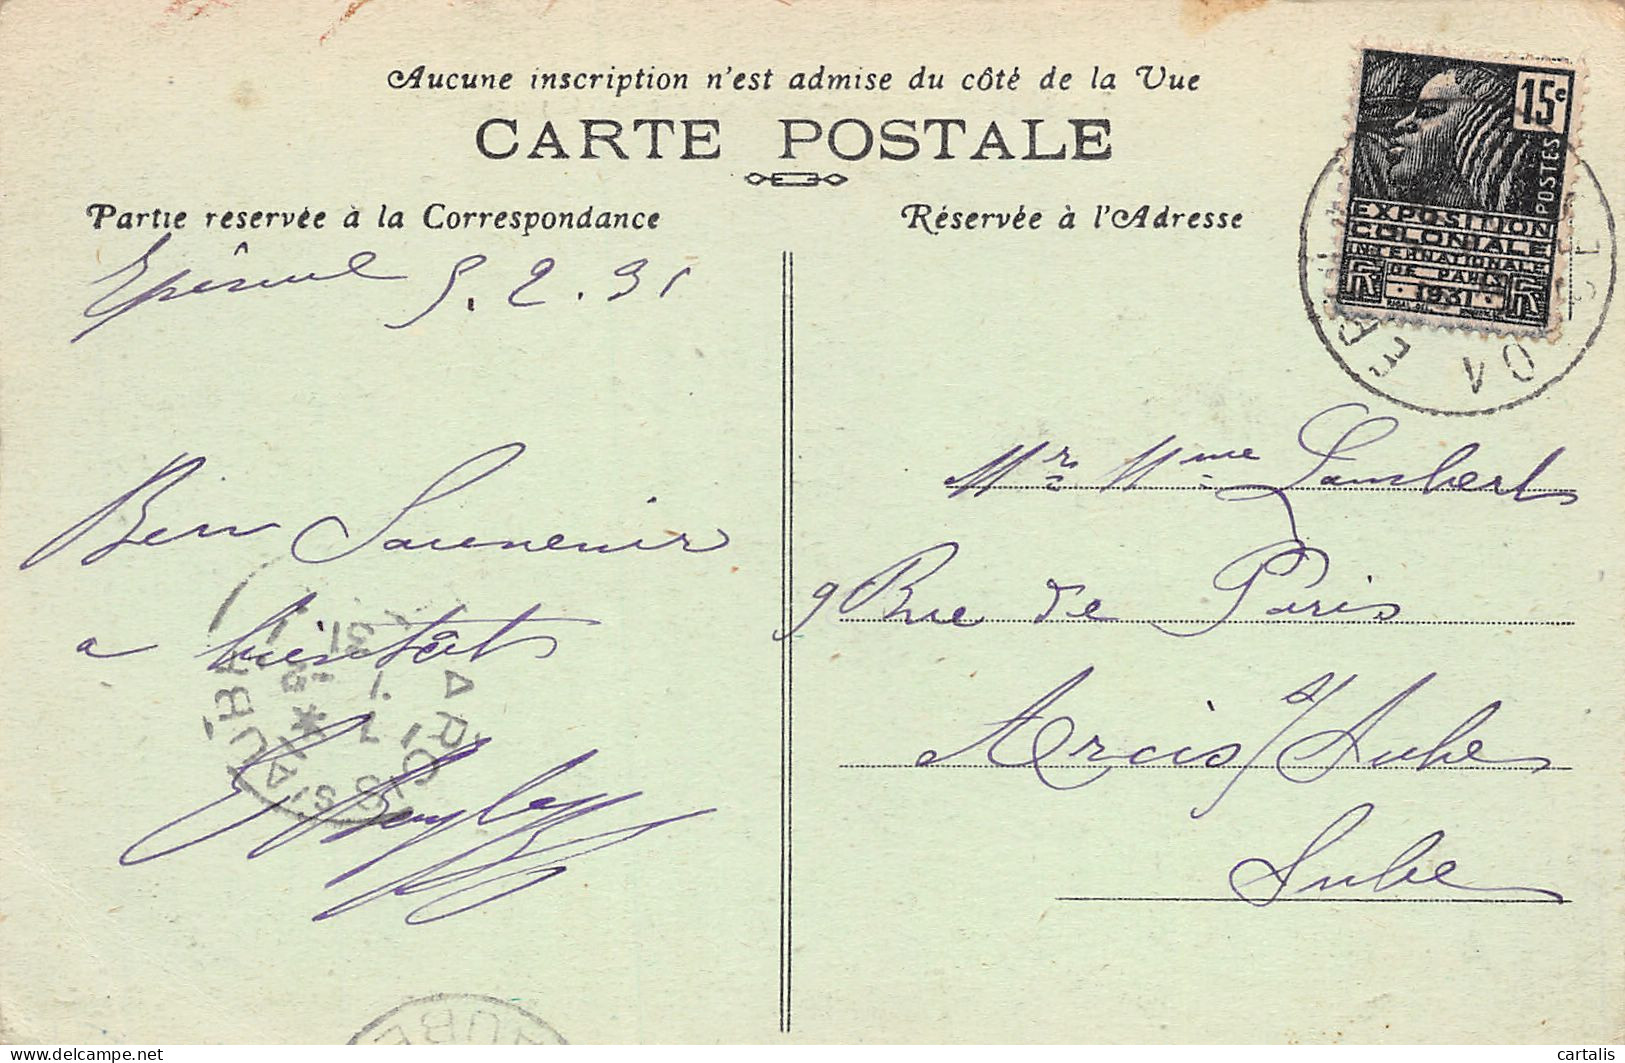 Aucune inscription n'est admise du côté de la Vue
CARTE POSTALE
Partie reservée à la Correspondance
Réservée à l'Adresse
15c
POSTES
EXPOSITION
COLONIALE
INTERNATIONALE
DE PARIS
1931
5. 2. 31
Bon Souvenir
a bientôt
Mr Mme Lambert
9 Rue de Paris
Arcis s/ Aube
Aube
ARCIS S/ AUBE
31
AUBE
cartalis
delcampe.net